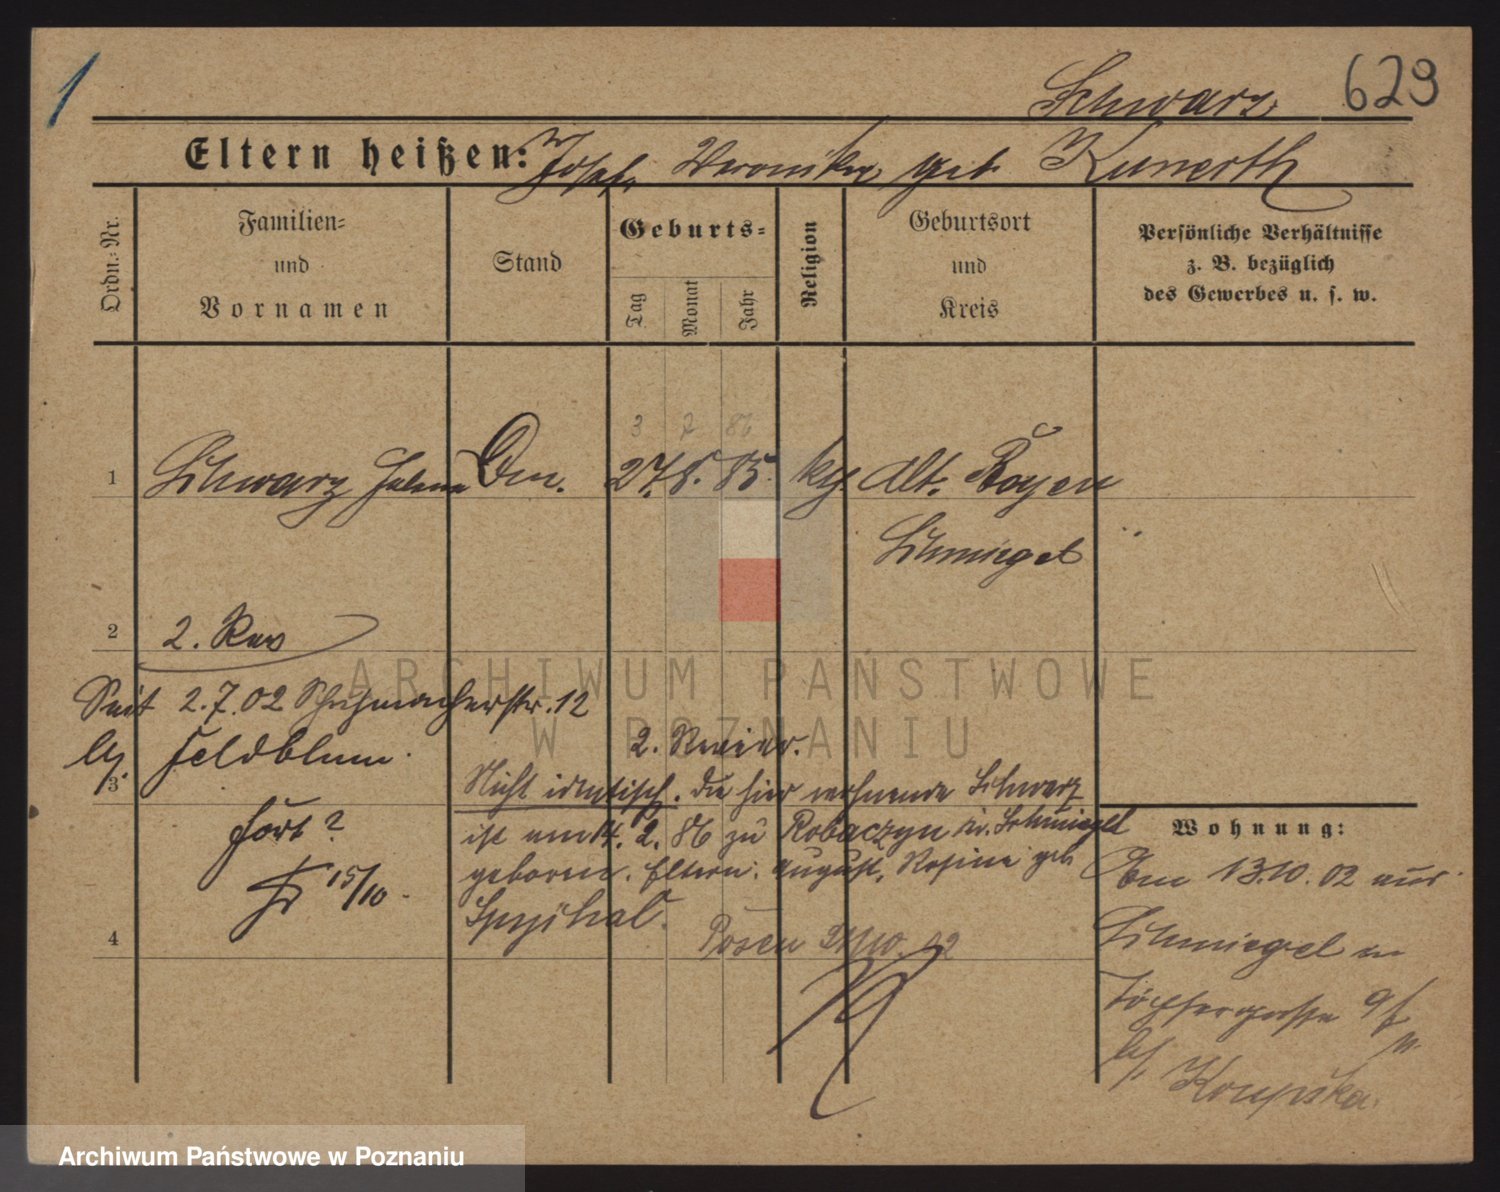 1
Schwarz 629
Eltern heißen: Josef, Veronika geb. Kunerth
Ordn.-Nr.
Familien- und Vornamen
Stand
Geburts-
Tag
Monat
Jahr
Religion
Geburtsort und Kreis
Persönliche Verhältnisse
z. B. bezüglich
des Gewerbes u. s. w.
3 7 86
1 Schwarz Helene Dm. 27. 8. 85. kth. Alt. Boyen
Schmiegel
2 2. Rev
Seit 2.7.02 Schuhmacherstr. 12
bei Feldblum.
3
fort?
15/10.
2. Revier.
Nicht identisch. Die hier wohnende Schwarz
ist am 14. 2. 86 zu Robaczyn Kr. Schmiegel
geboren. Eltern: August, Rosina geb.
4
Posen
Wohnung:
Am 13.10.02 aus
Schmiegel in
Töpfergasse 9
bei Krupska.
ARCHIWUM PAŃSTWOWE
W POZNANIU
Archiwum Państwowe w Poznaniu